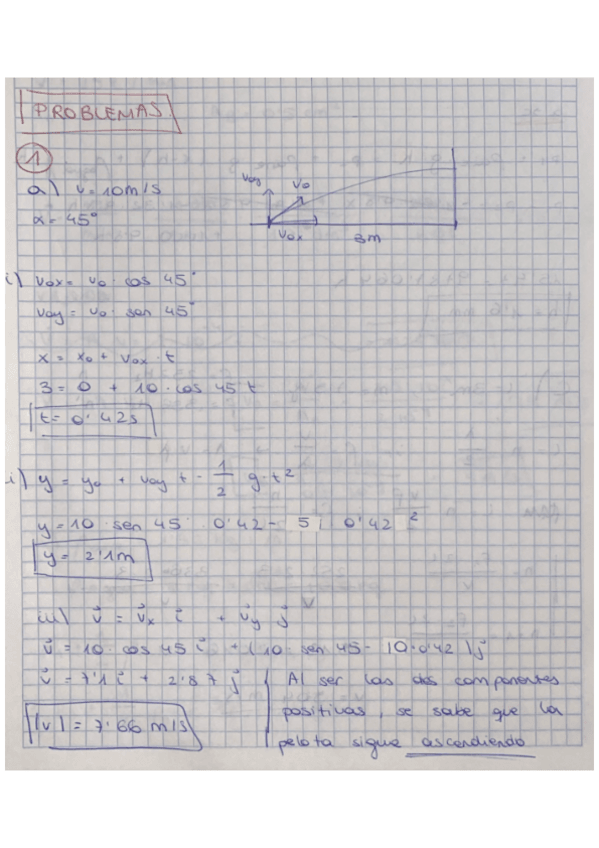 PROBLEMAS.
1
a) v = 10m/s
α = 45°
voy
vo
vox
3m
i) vox = vo · cos 45°
voy = vo · sen 45°
x = xo + vox · t
3 = 0 + 10 · cos 45 t
t = 0'42s
i) y = yo + voy t - 1/2 g · t²
y = 10 sen 45 0'42 - 5 0'42 ²
y = 2'1m
iii) v⃗ = v⃗x i⃗ + v⃗y j⃗
v⃗ = 10 cos 45 i⃗ + (10 sen 45 - 10·0'42) j⃗
v⃗ = 7'1 i⃗ + 2'87 j⃗
|v| = 7'66 m/s
Al ser las dos componentes
positivas, se sabe que la
pelota sigue ascendiendo